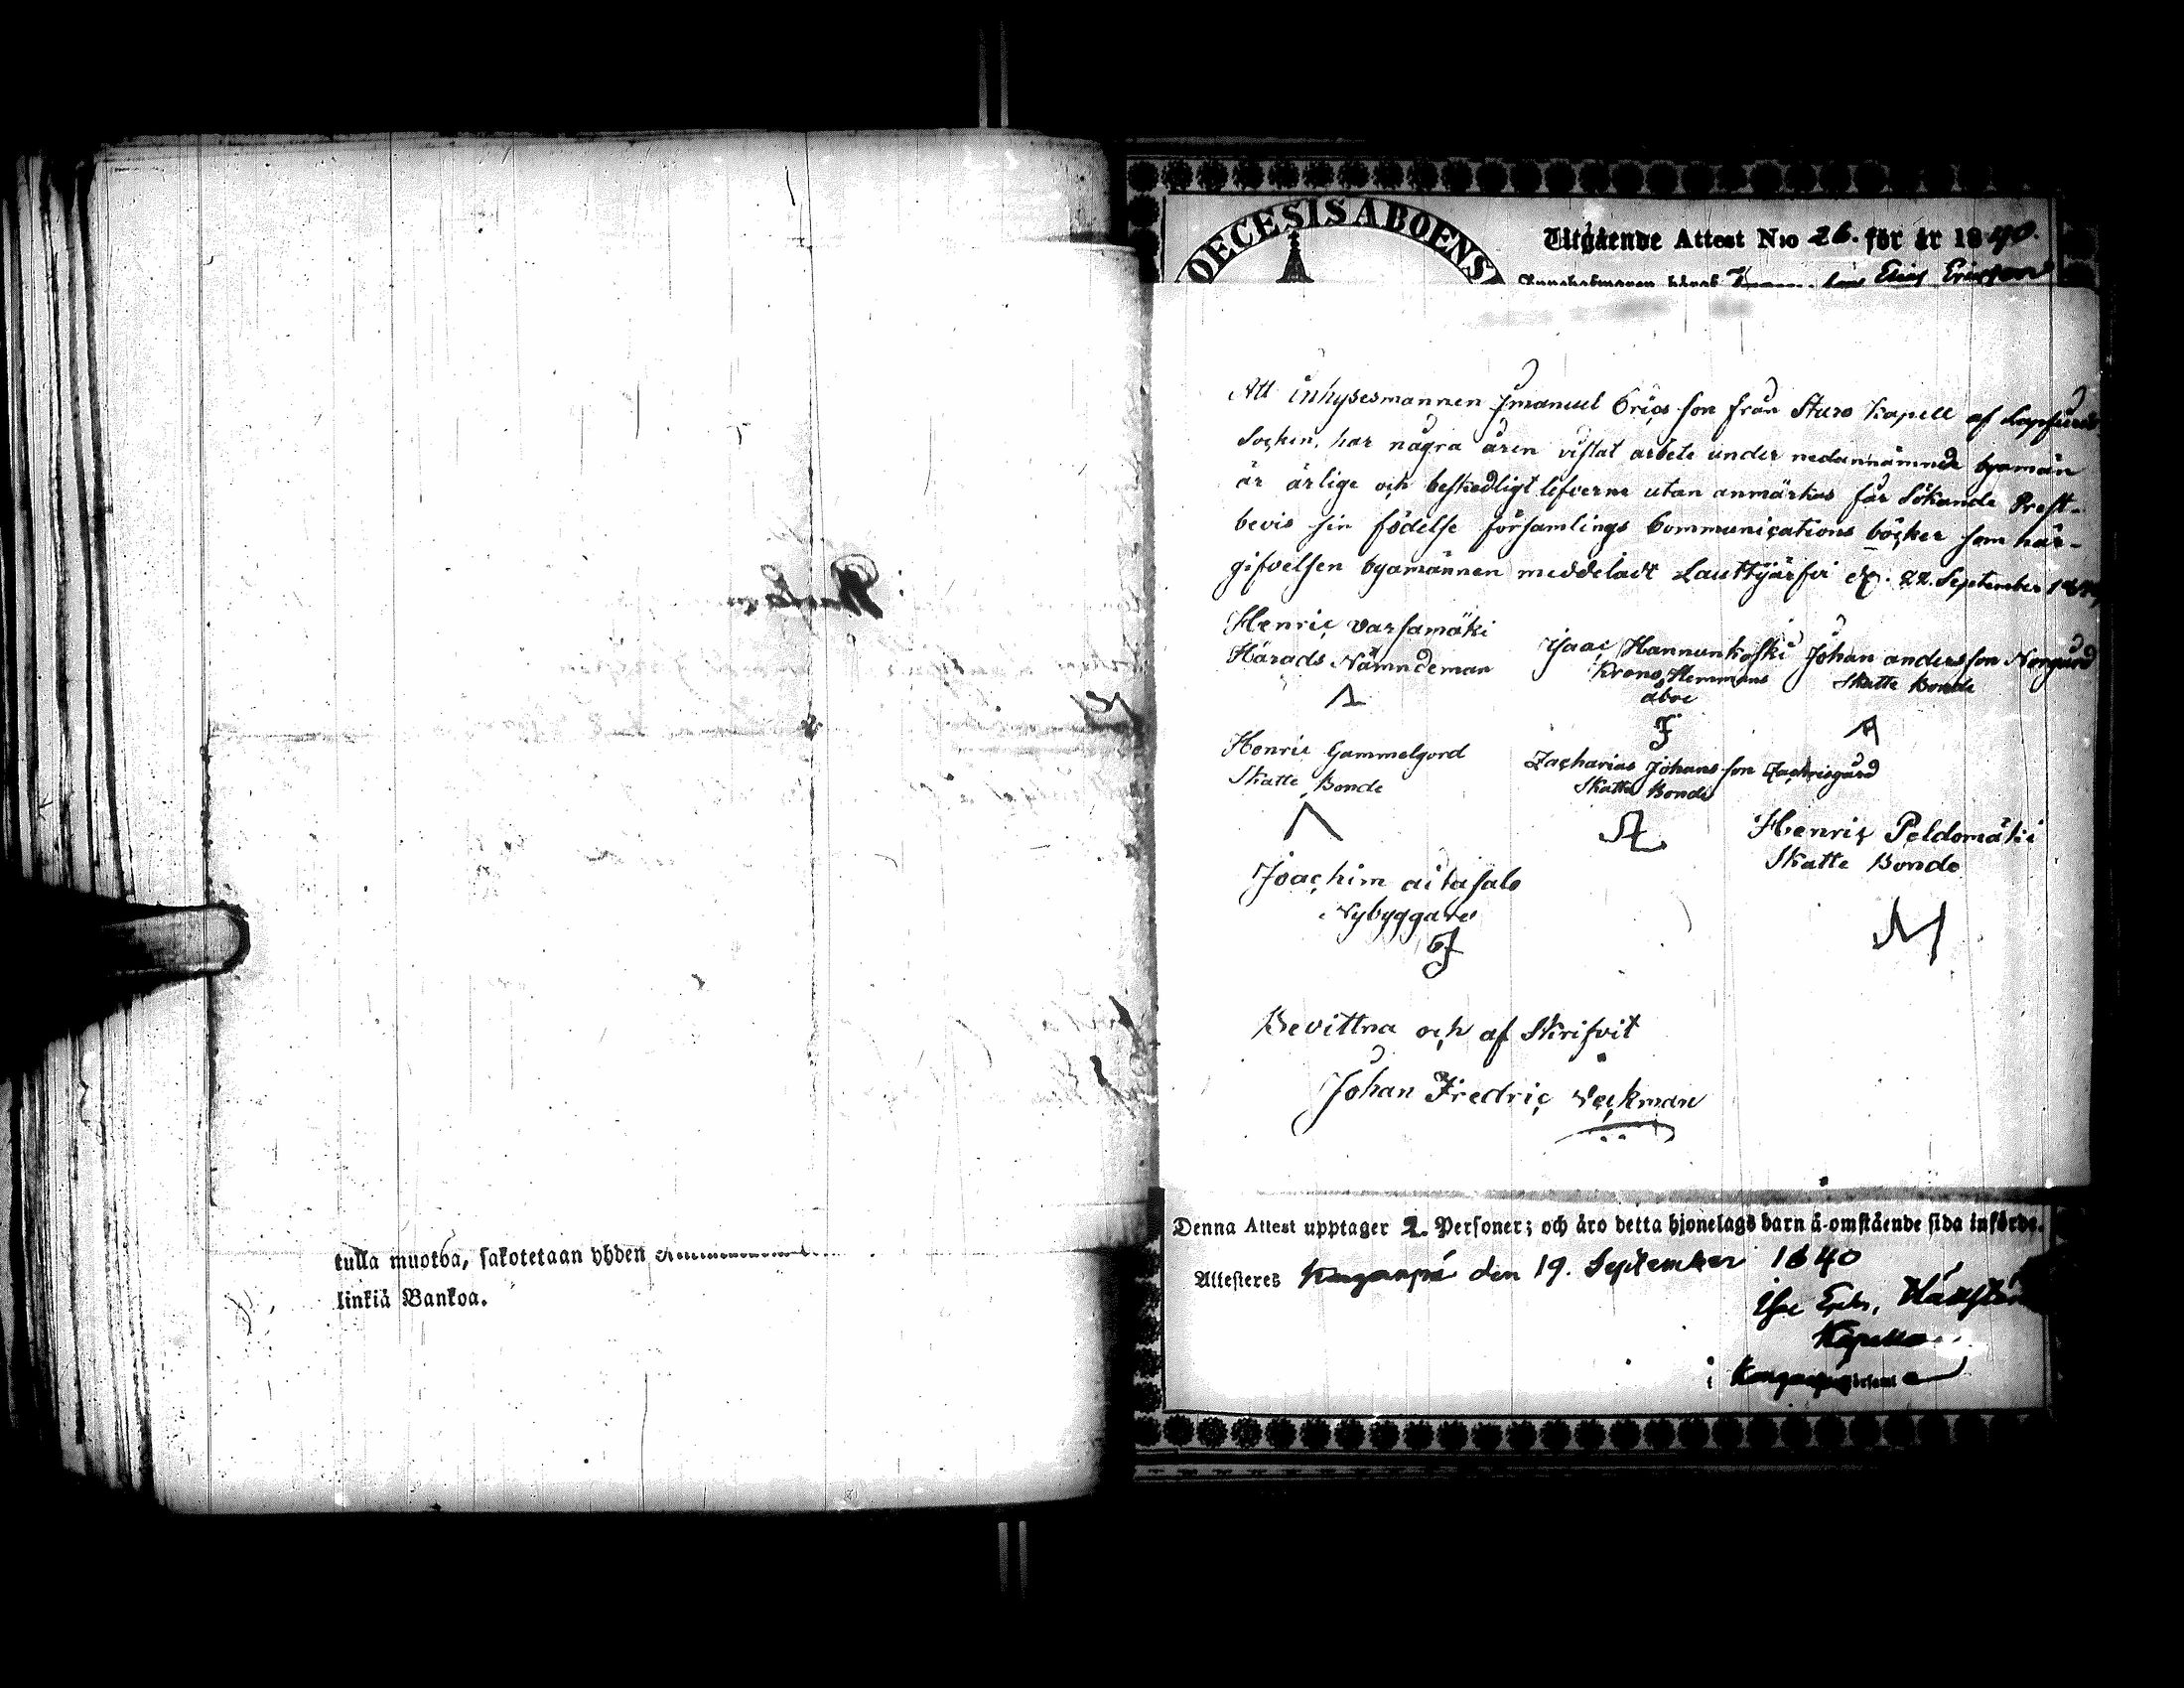 tulla muotoa, sakotetaan yhden
linkiä Bankoa.
OECESIS ABOENS
Utgående Attest N:o 26. för år 1840.
Eric Ericsson
Att inhysesmannen Jmanuel Ericsson från Sturo Kapell af
Socken, har några åren vistat arbete under nedannämnde byamän
är ärlige och beskedligt lefverne utan anmärkas får Sökande Prest-
bevis sin födelse församlings Communications böcker som här-
gifvelsen byamännen meddeladt Lauttijärfvi d. 22. September
Henric Varsamäki
Härads Nämndeman
Isaac Hannunkoski
Krono Hemmans
åboe
Johan andersson Norgård
Skatte Bonde
Henric Gammelgord
Skatte Bonde
Zacharias Johansson Zachrisgård
Skatte Bonde
Henric Peldomäki
Skatte Bonde
Joachim aitasalo
Nybyggare
Bevittna och af Skrifvit
Johan Fredric Veckman
Denna Attest upptager 2. Personer; och äro detta hjonelags barn å omstående sida införde.
Attesteres Kangarpä den 19. September 1840
Kapellan
i